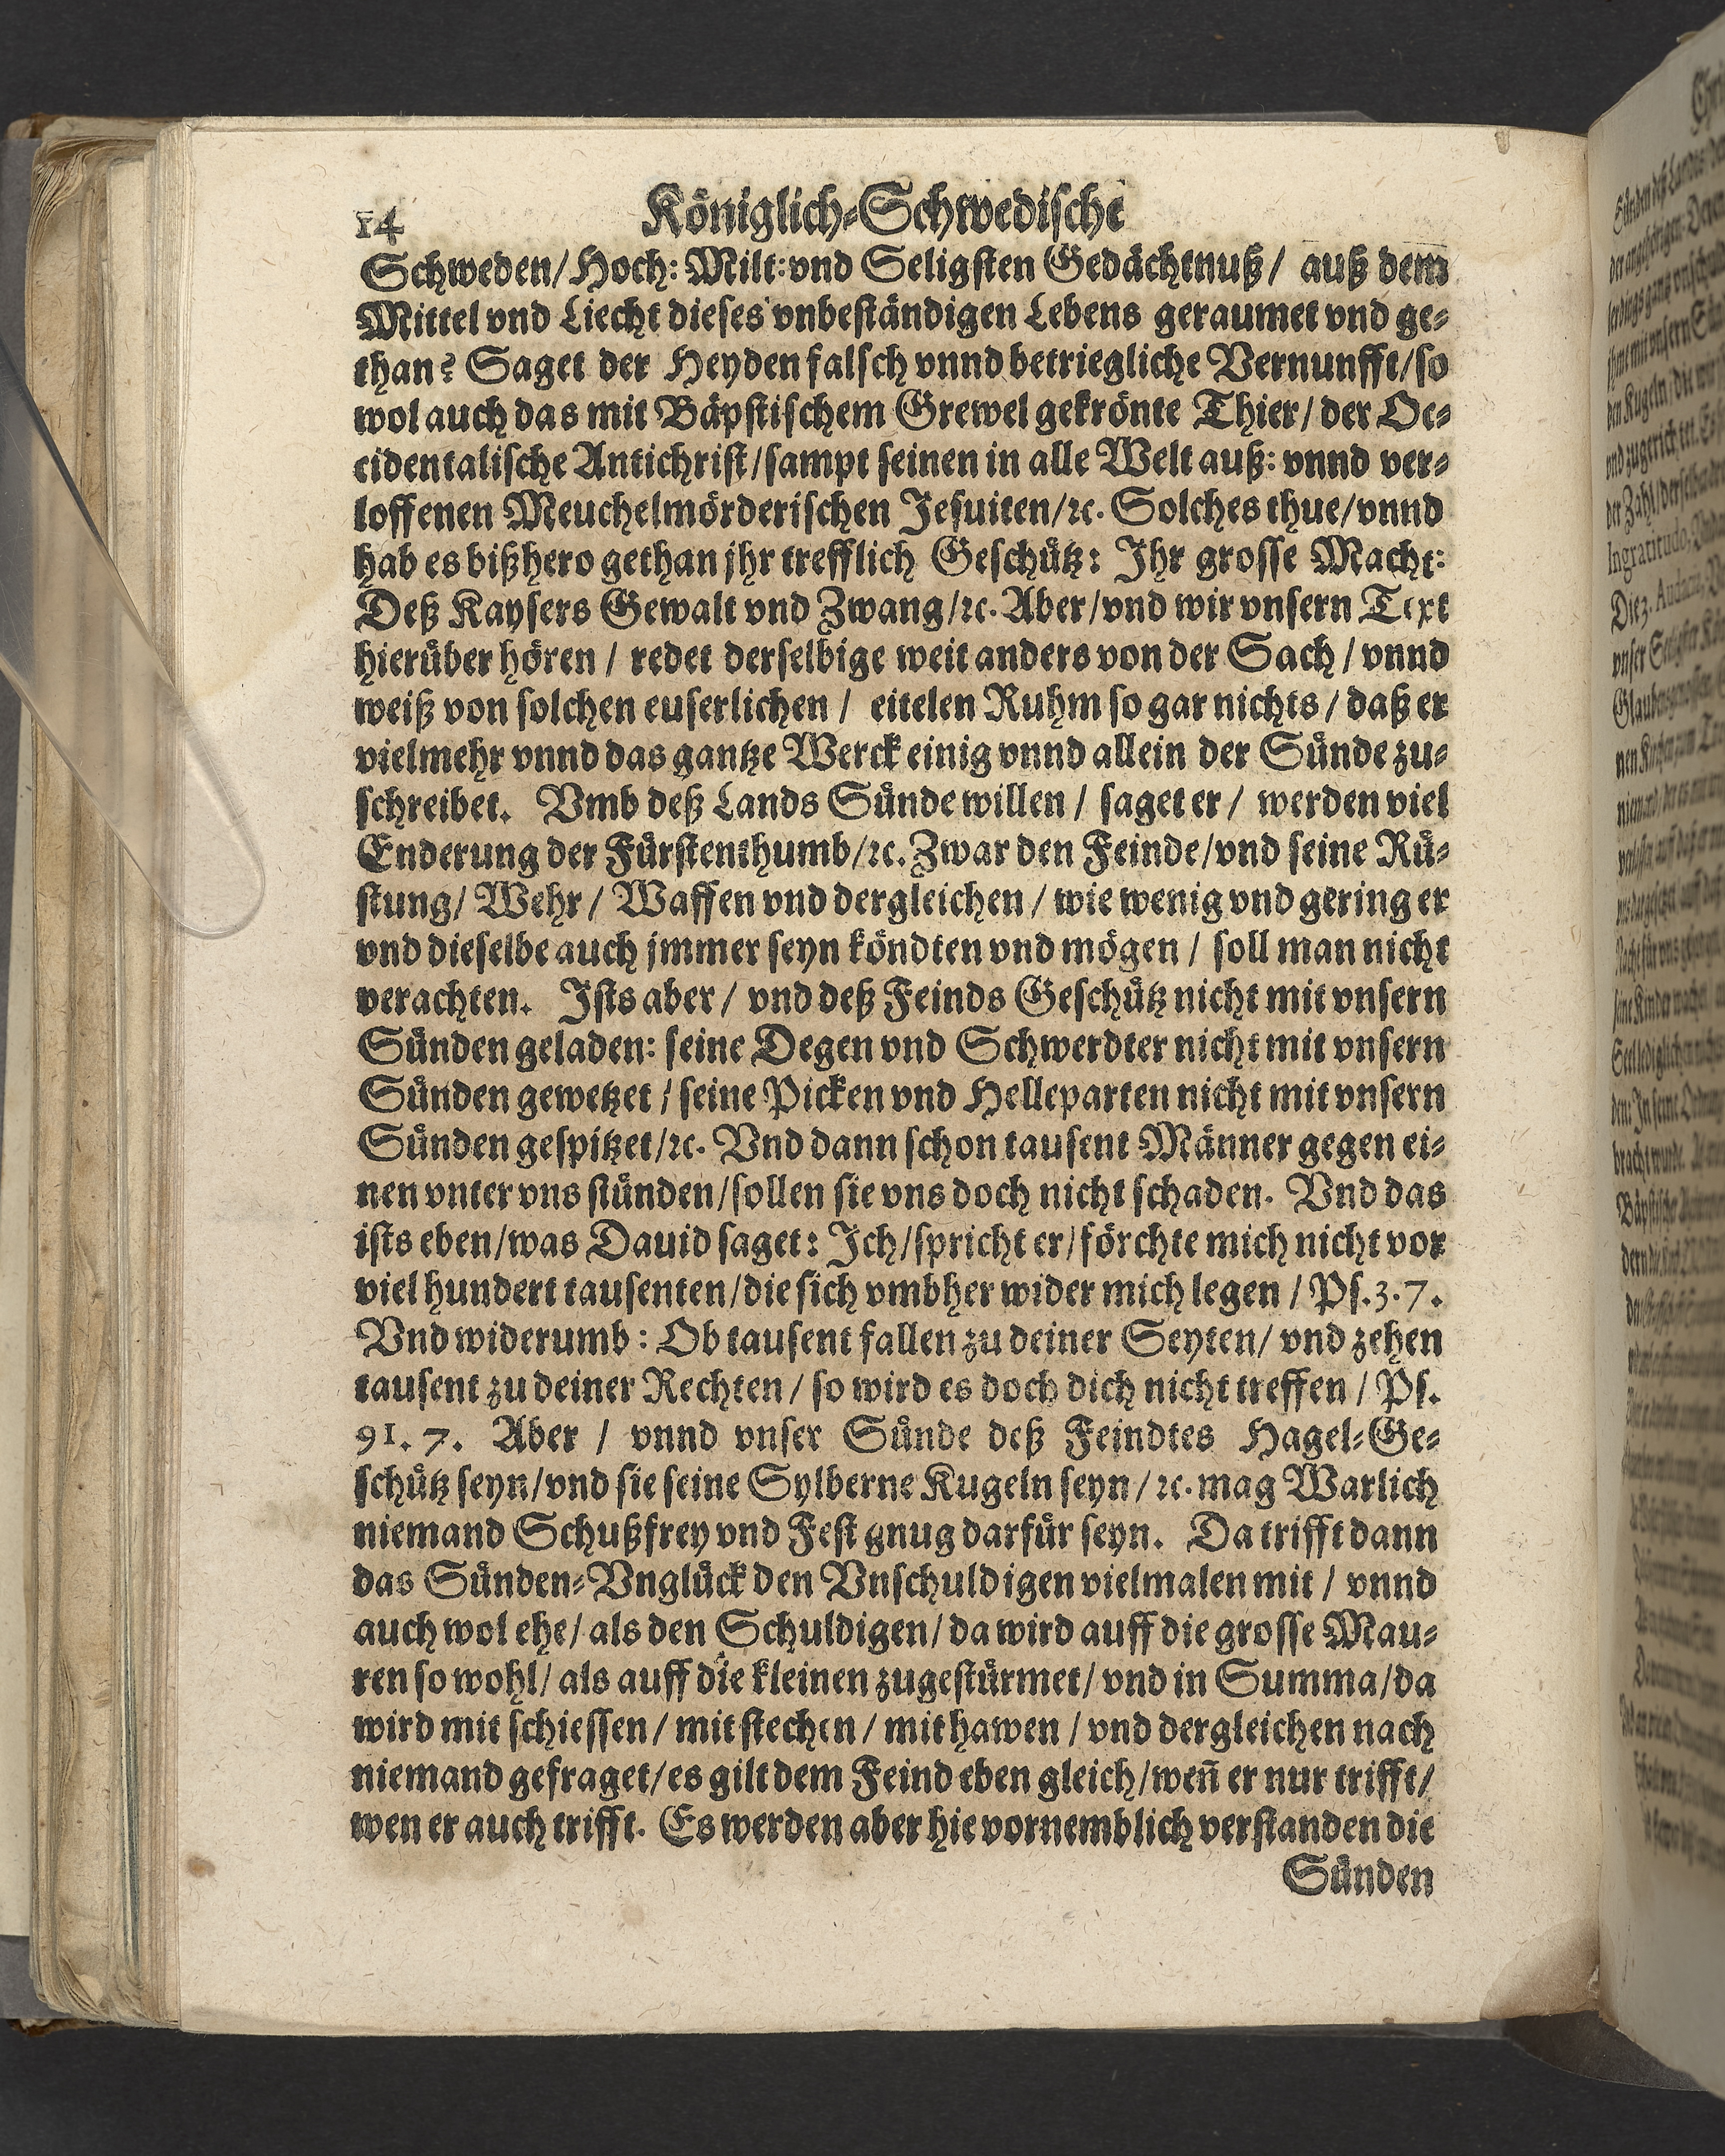 14 Königlich-Schwedische
Schweden/ Hoch: Milt: vnd Seligsten Gedächtnuß/ auß dem
Mittel vnd Liecht dieses vnbeständigen Lebens geraumet vnd ge-
than? Saget der Heyden falsch vnnd betriegliche Vernunfft/ so
wol auch das mit Bäpstischem Grewel gekrönte Thier/ der Oc-
cidentalische Antichrist/ sampt seinen in alle Welt auß: vnnd ver-
loffenen Meuchelmörderischen Jesuiten/ ꝛc. Solches thue/ vnnd
hab es bißhero gethan jhr trefflich Geschütz: Ihr grosse Macht:
Deß Kaysers Gewalt vnd Zwang/ ꝛc. Aber/ vnd wir vnsern Text
hierüber hören / redet derselbige weit anders von der Sach / vnnd
weiß von solchen euserlichen / eitelen Ruhm so gar nichts / daß er
vielmehr vnnd das gantze Werck einig vnnd allein der Sünde zu-
schreibet. Vmb deß Lands Sünde willen / saget er / werden viel
Enderung der Fürstenthumb/ ꝛc. Zwar den Feinde/ vnd seine Rü-
stung/ Wehr / Waffen vnd dergleichen / wie wenig vnd gering er
vnd dieselbe auch jmmer seyn köndten vnd mögen / soll man nicht
verachten. Ists aber / vnd deß Feinds Geschütz nicht mit vnsern
Sünden geladen: seine Degen vnd Schwerdter nicht mit vnsern
Sünden gewetzet / seine Picken vnd Helleparten nicht mit vnsern
Sünden gespitzet/ ꝛc. Vnd dann schon tausent Männer gegen ei-
nen vnter vns stünden/ sollen sie vns doch nicht schaden. Vnd das
ists eben/ was Dauid saget: Ich/ spricht er/ förchte mich nicht vor
viel hundert tausenten/ die sich vmbher wider mich legen / Ps. 3. 7.
Vnd widerumb: Ob tausent fallen zu deiner Seyten/ vnd zehen
tausent zu deiner Rechten / so wird es doch dich nicht treffen / Ps.
91. 7. Aber / vnnd vnser Sünde deß Feindtes Hagel-Ge-
schütz seyn/ vnd sie seine Sylberne Kugeln seyn / ꝛc. mag Warlich
niemand Schußfrey vnd Fest gnug darfür seyn. Da trifft dann
das Sünden-Vnglück den Vnschuldigen vielmalen mit / vnnd
auch wol ehe/ als den Schuldigen/ da wird auff die grosse Mau-
ren so wohl/ als auff die kleinen zugestürmet/ vnd in Summa/ da
wird mit schiessen / mit stechen / mit hawen / vnd dergleichen nach
niemand gefraget/ es gilt dem Feind eben gleich/ weñ er nur trifft/
wen er auch trifft. Es werden aber hie vornemblich verstanden die
Sünden